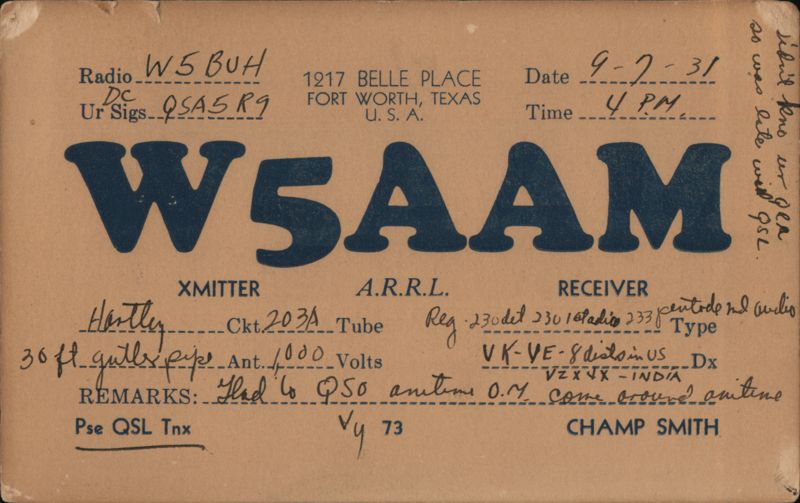 Radio W5BUH
1217 BELLE PLACE
FORT WORTH, TEXAS
U. S. A.
Date 9-7-31
DC
Ur Sigs QSA5 R9
Time 4 P.M.
W5AAM
XMITTER A.R.R.L. RECEIVER
Hartley Ckt. 203A Tube Reg. 230 det 230 1st audio 233 pentode 2nd audio Type
30 ft gutter pipe Ant. 1,000 Volts VK-VE-8 dists in US Dx
REMARKS: Glad to QSO anitime O.M. come around anitime
Pse QSL Tnx Vy 73 CHAMP SMITH
didn't kno ur
so was late with QSL.